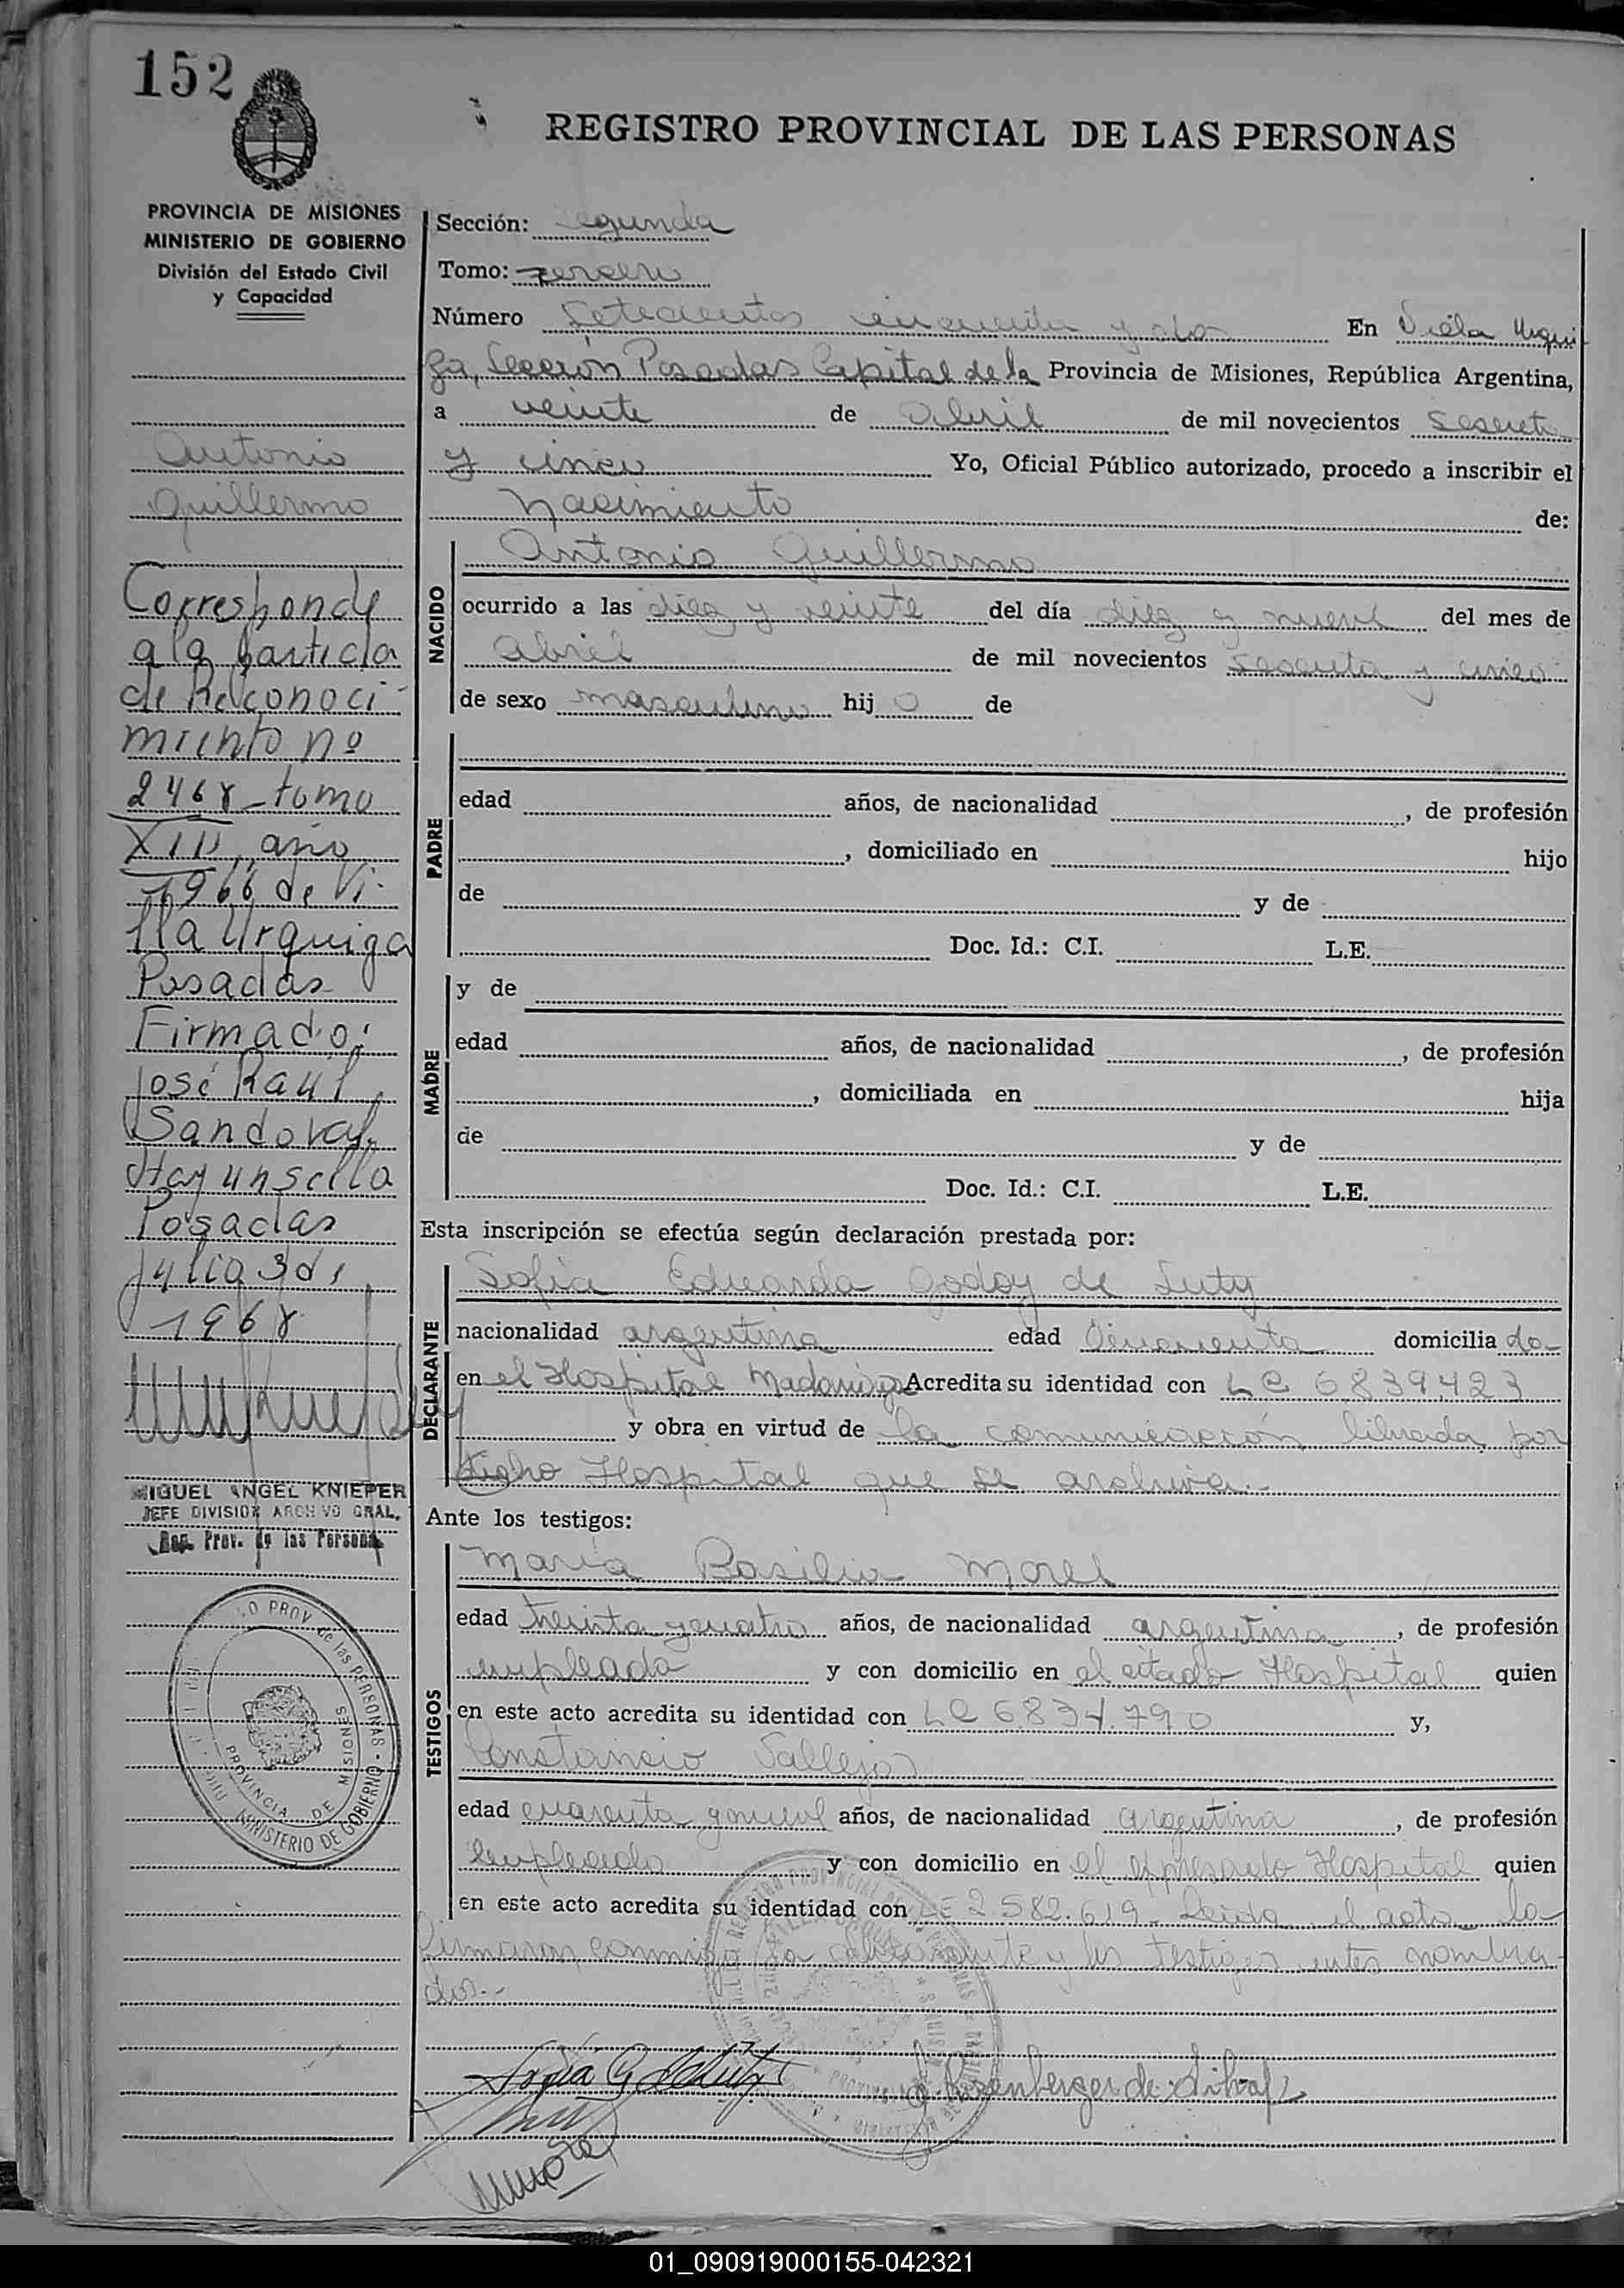 152
REGISTRO PROVINCIAL DE LAS PERSONAS
PROVINCIA DE MISIONES
MINISTERIO DE GOBIERNO
División del Estado Civil
y Capacidad
Antonio
Guillermo
Corresponde
a la partida
de Reconoci-
miento nº
2468 - tomo
XIII, año
1966 de Vi-
lla Urquiza
Posadas
Firmado:
José Raúl
Sandoval
Hay un sello
Posadas
Julio 3 de
1968
MIGUEL ANGEL KNIEPER
JEFE DIVISION ARCHIVO GRAL.
Reg. Prov. de las Personas
PROV. de las PERSONAS - MINISTERIO DE GOBIERNO
PROVINCIA DE MISIONES
Sección: Segunda
Tomo: Tercero
Número Setecientos cincuenta y dos En Villa Urqui
za, Sección Posadas Capital de la Provincia de Misiones, República Argentina,
a veinte de Abril de mil novecientos sesenta
y cinco Yo, Oficial Público autorizado, procedo a inscribir el
Nacimiento de:
NACIDO
Antonio Guillermo
ocurrido a las diez y veinte del día diez y nueve del mes de
Abril de mil novecientos sesenta y cinco
de sexo masculino hijo de
PADRE
edad años, de nacionalidad , de profesión
, domiciliado en hijo
de y de
Doc. Id.: C.I. L.E.
MADRE
y de
edad años, de nacionalidad , de profesión
, domiciliada en hija
de y de
Doc. Id.: C.I. L.E.
Esta inscripción se efectúa según declaración prestada por:
DECLARANTE
Sofia Eduarda Godoy de Luty
nacionalidad argentina edad Cincuenta domiciliada
en el Hospital Madariaga Acredita su identidad con LC 6839423
y obra en virtud de la comunicación librada por
dicho Hospital que se archiva.-
Ante los testigos:
TESTIGOS
María Basilia Morel
edad treinta y cuatro años, de nacionalidad argentina, de profesión
empleada y con domicilio en el citado Hospital quien
en este acto acredita su identidad con LC 6.834.790 y,
Constancio Vallejos
edad cuarenta y nueve años, de nacionalidad argentina, de profesión
empleado y con domicilio en el expresado Hospital quien
en este acto acredita su identidad con LE 2.582.619. Leida el acta la
firmaron conmigo la declarante y los testigos antes nombra-
dos.-
Sofia G de Luty
Rosenberger de Silva
Morel
01_090919000155-042321